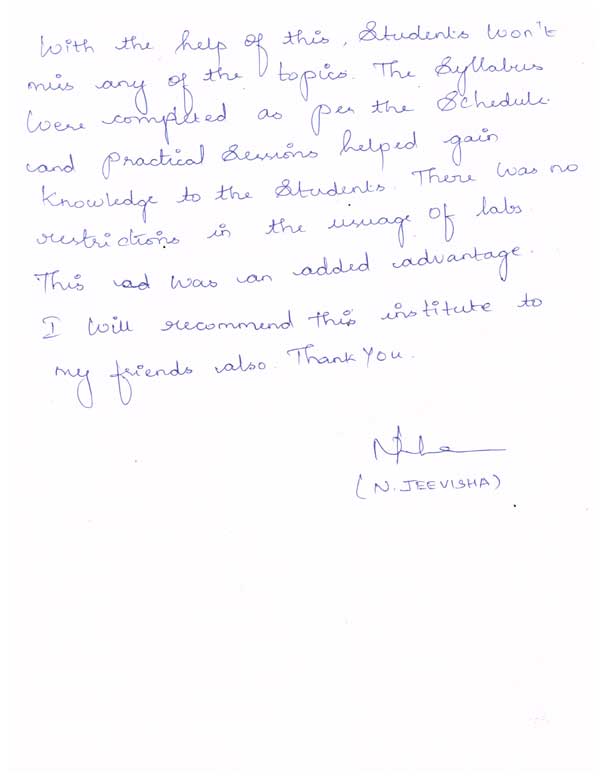 With the help of this, Students won't
miss any of the topics. The Syllabus
Were completed as per the Schedule
and practical Sessions helped gain
Knowledge to the Students. There was no
restrictions in the usuage of labs.
This ad was an added advantage.
I will recommend this institute to
my friends also. Thank You.
(N. JEEVISHA)